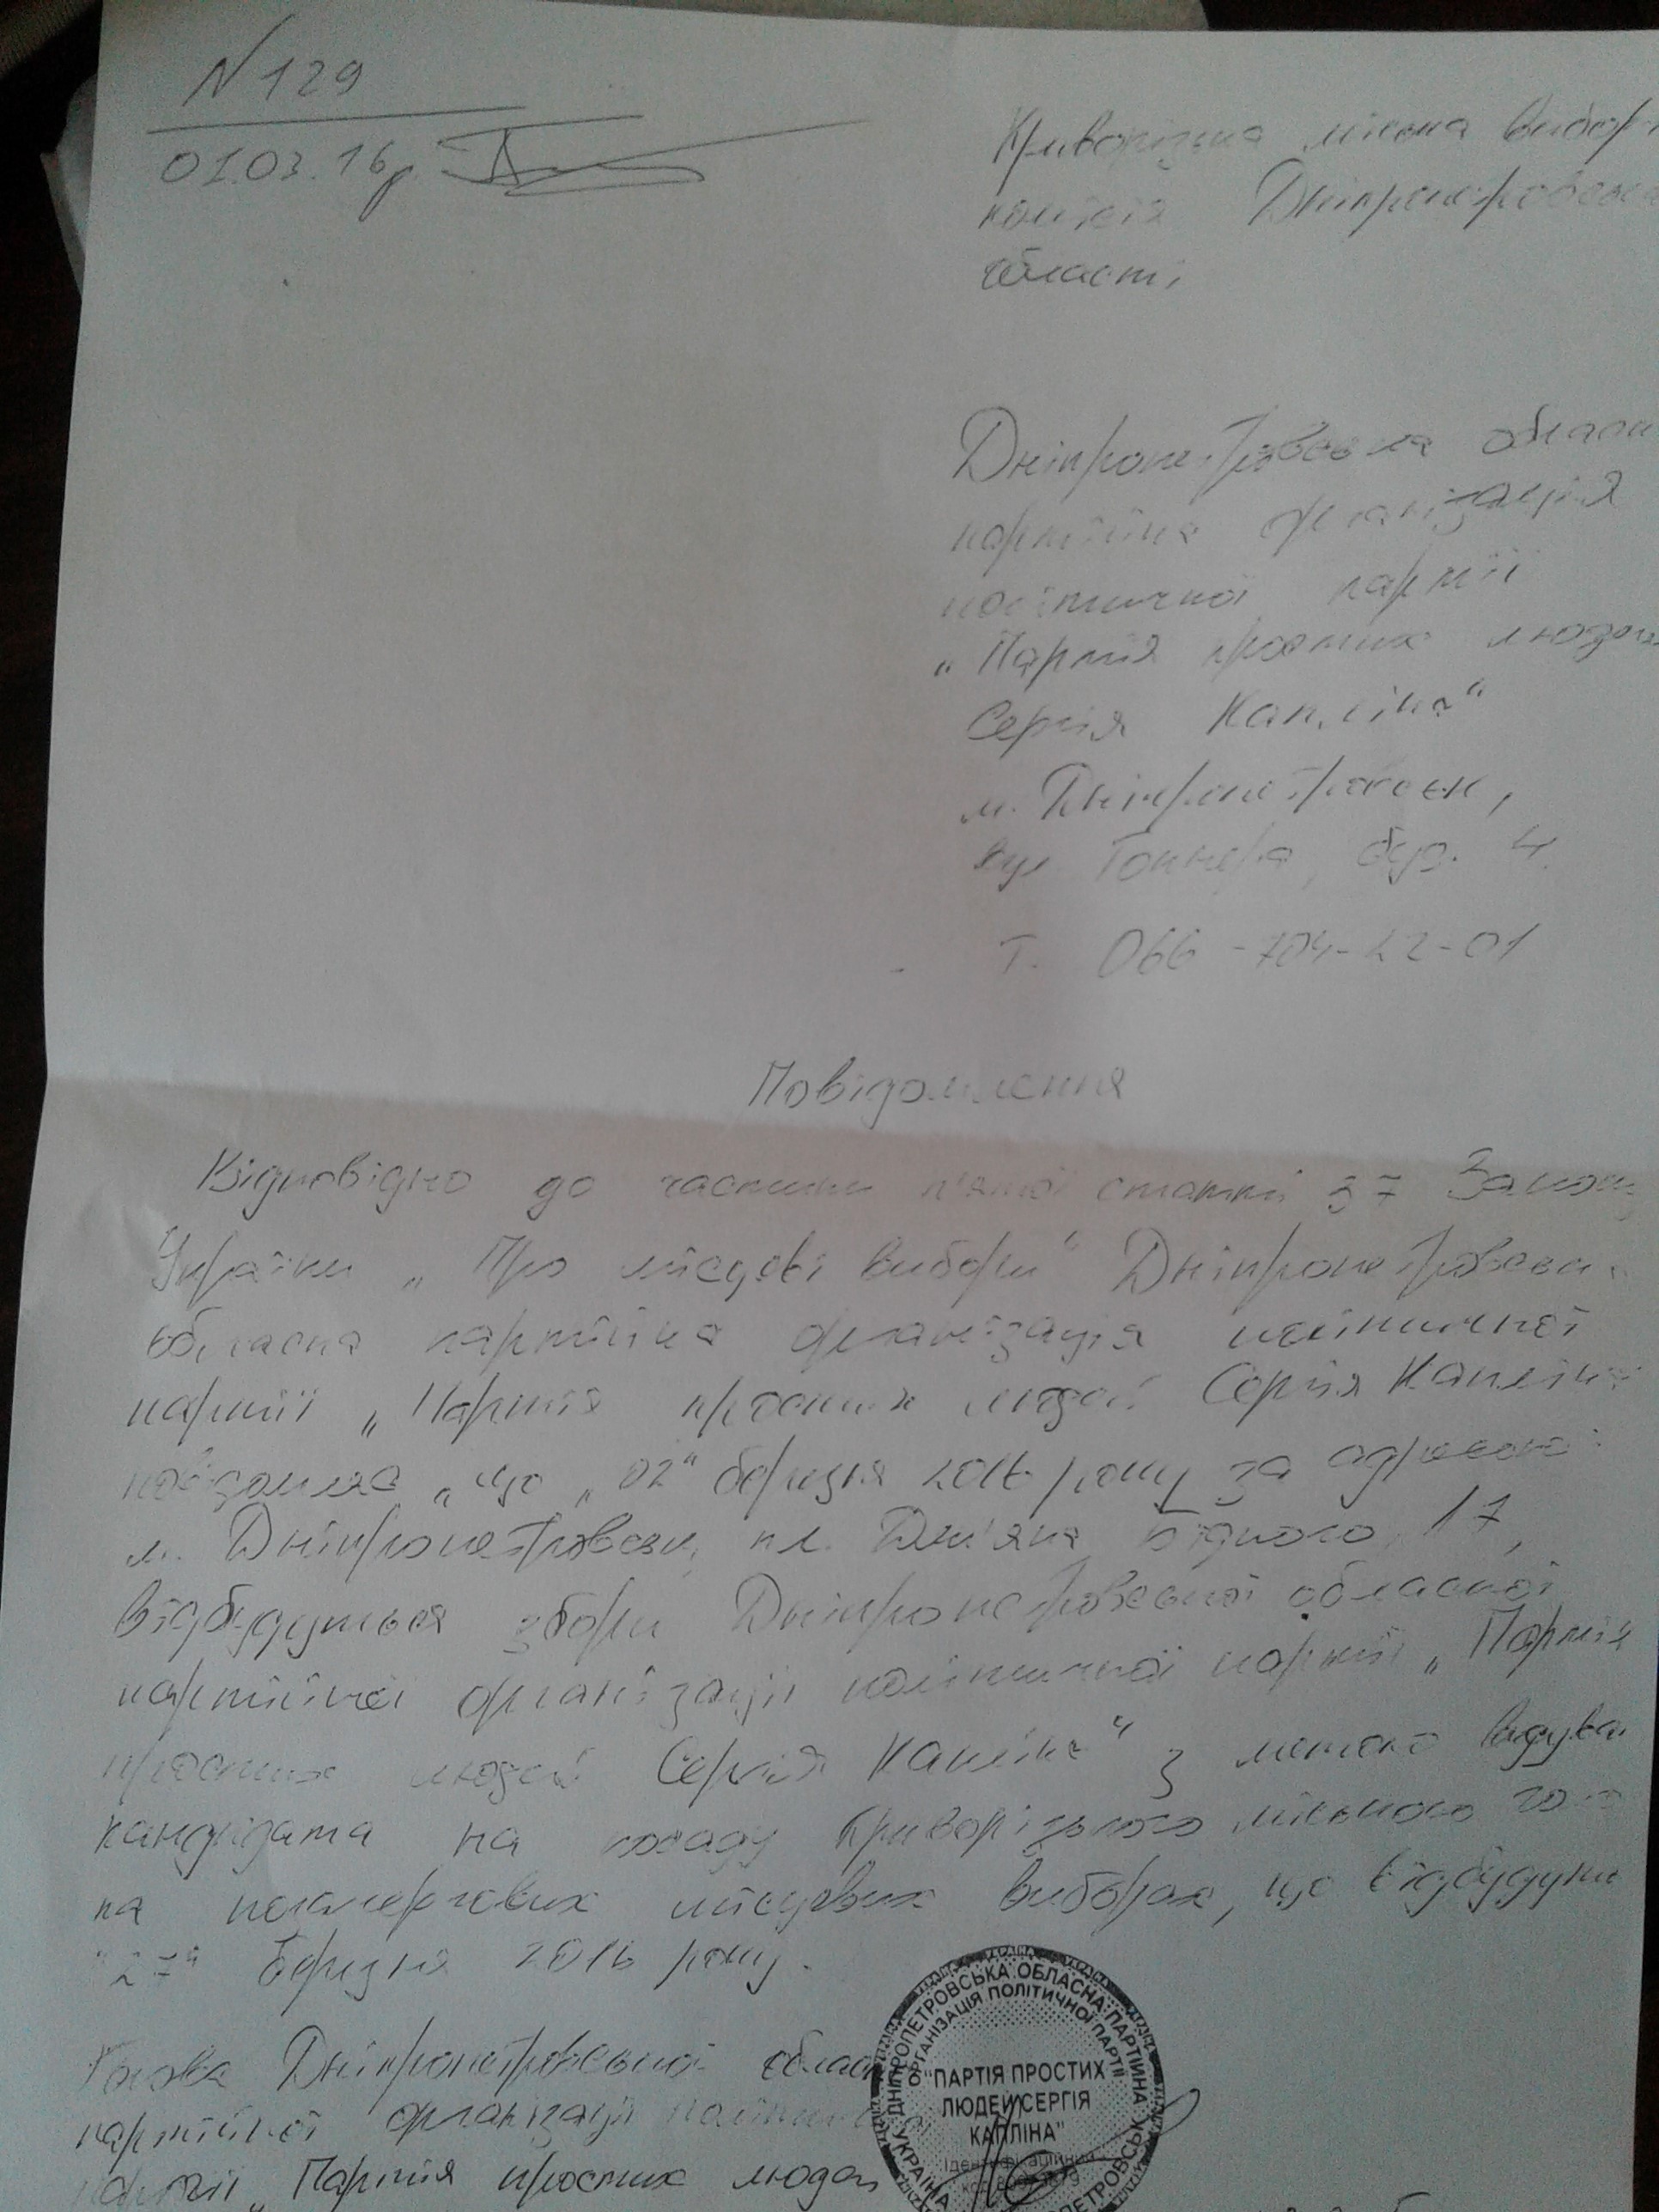 N 129
01.03.16р.
Криворізька міська вибор
комісія Дніпропетровська
області
Дніпропетровська обласн
партійна організація
політичної партії
„Партія простих людей
Сергія Капліна“
м. Дніпропетровськ,
вул Гопнера, буд. 4
Т. 066-704-22-01
Повідомлення
Відповідно до частини п'ятої статті 37 Закону
України „Про місцеві вибори“ Дніпропетровська
обласна партійна організація політичної
партії „Партія простих людей Сергія Капліна
повідомляє, що „02“ березня 2016 року за адресою:
м. Дніпропетровськ, пл. Дем'яна Бідного, 17,
відбудуться збори Дніпропетровської обласної
партійної організації політичної партії „Партія
простих людей Сергія Капліна“ з метою висува
кандидата на посаду Криворізького міського го
на позачергових місцевих виборах, що відбудуть
"27" Березня 2016 року.
Голова Дніпропетровської облас
партійної організації політичної
партії „Партія простих людей
УКРАЇНА
ДНІПРОПЕТРОВСЬКА ОБЛАСНА ПАРТІЙНА
ОРГАНІЗАЦІЯ ПОЛІТИЧНОЇ ПАРТІЇ
"ПАРТІЯ ПРОСТИХ
ЛЮДЕЙ СЕРГІЯ
КАПЛІНА"
Ідентифікаційний